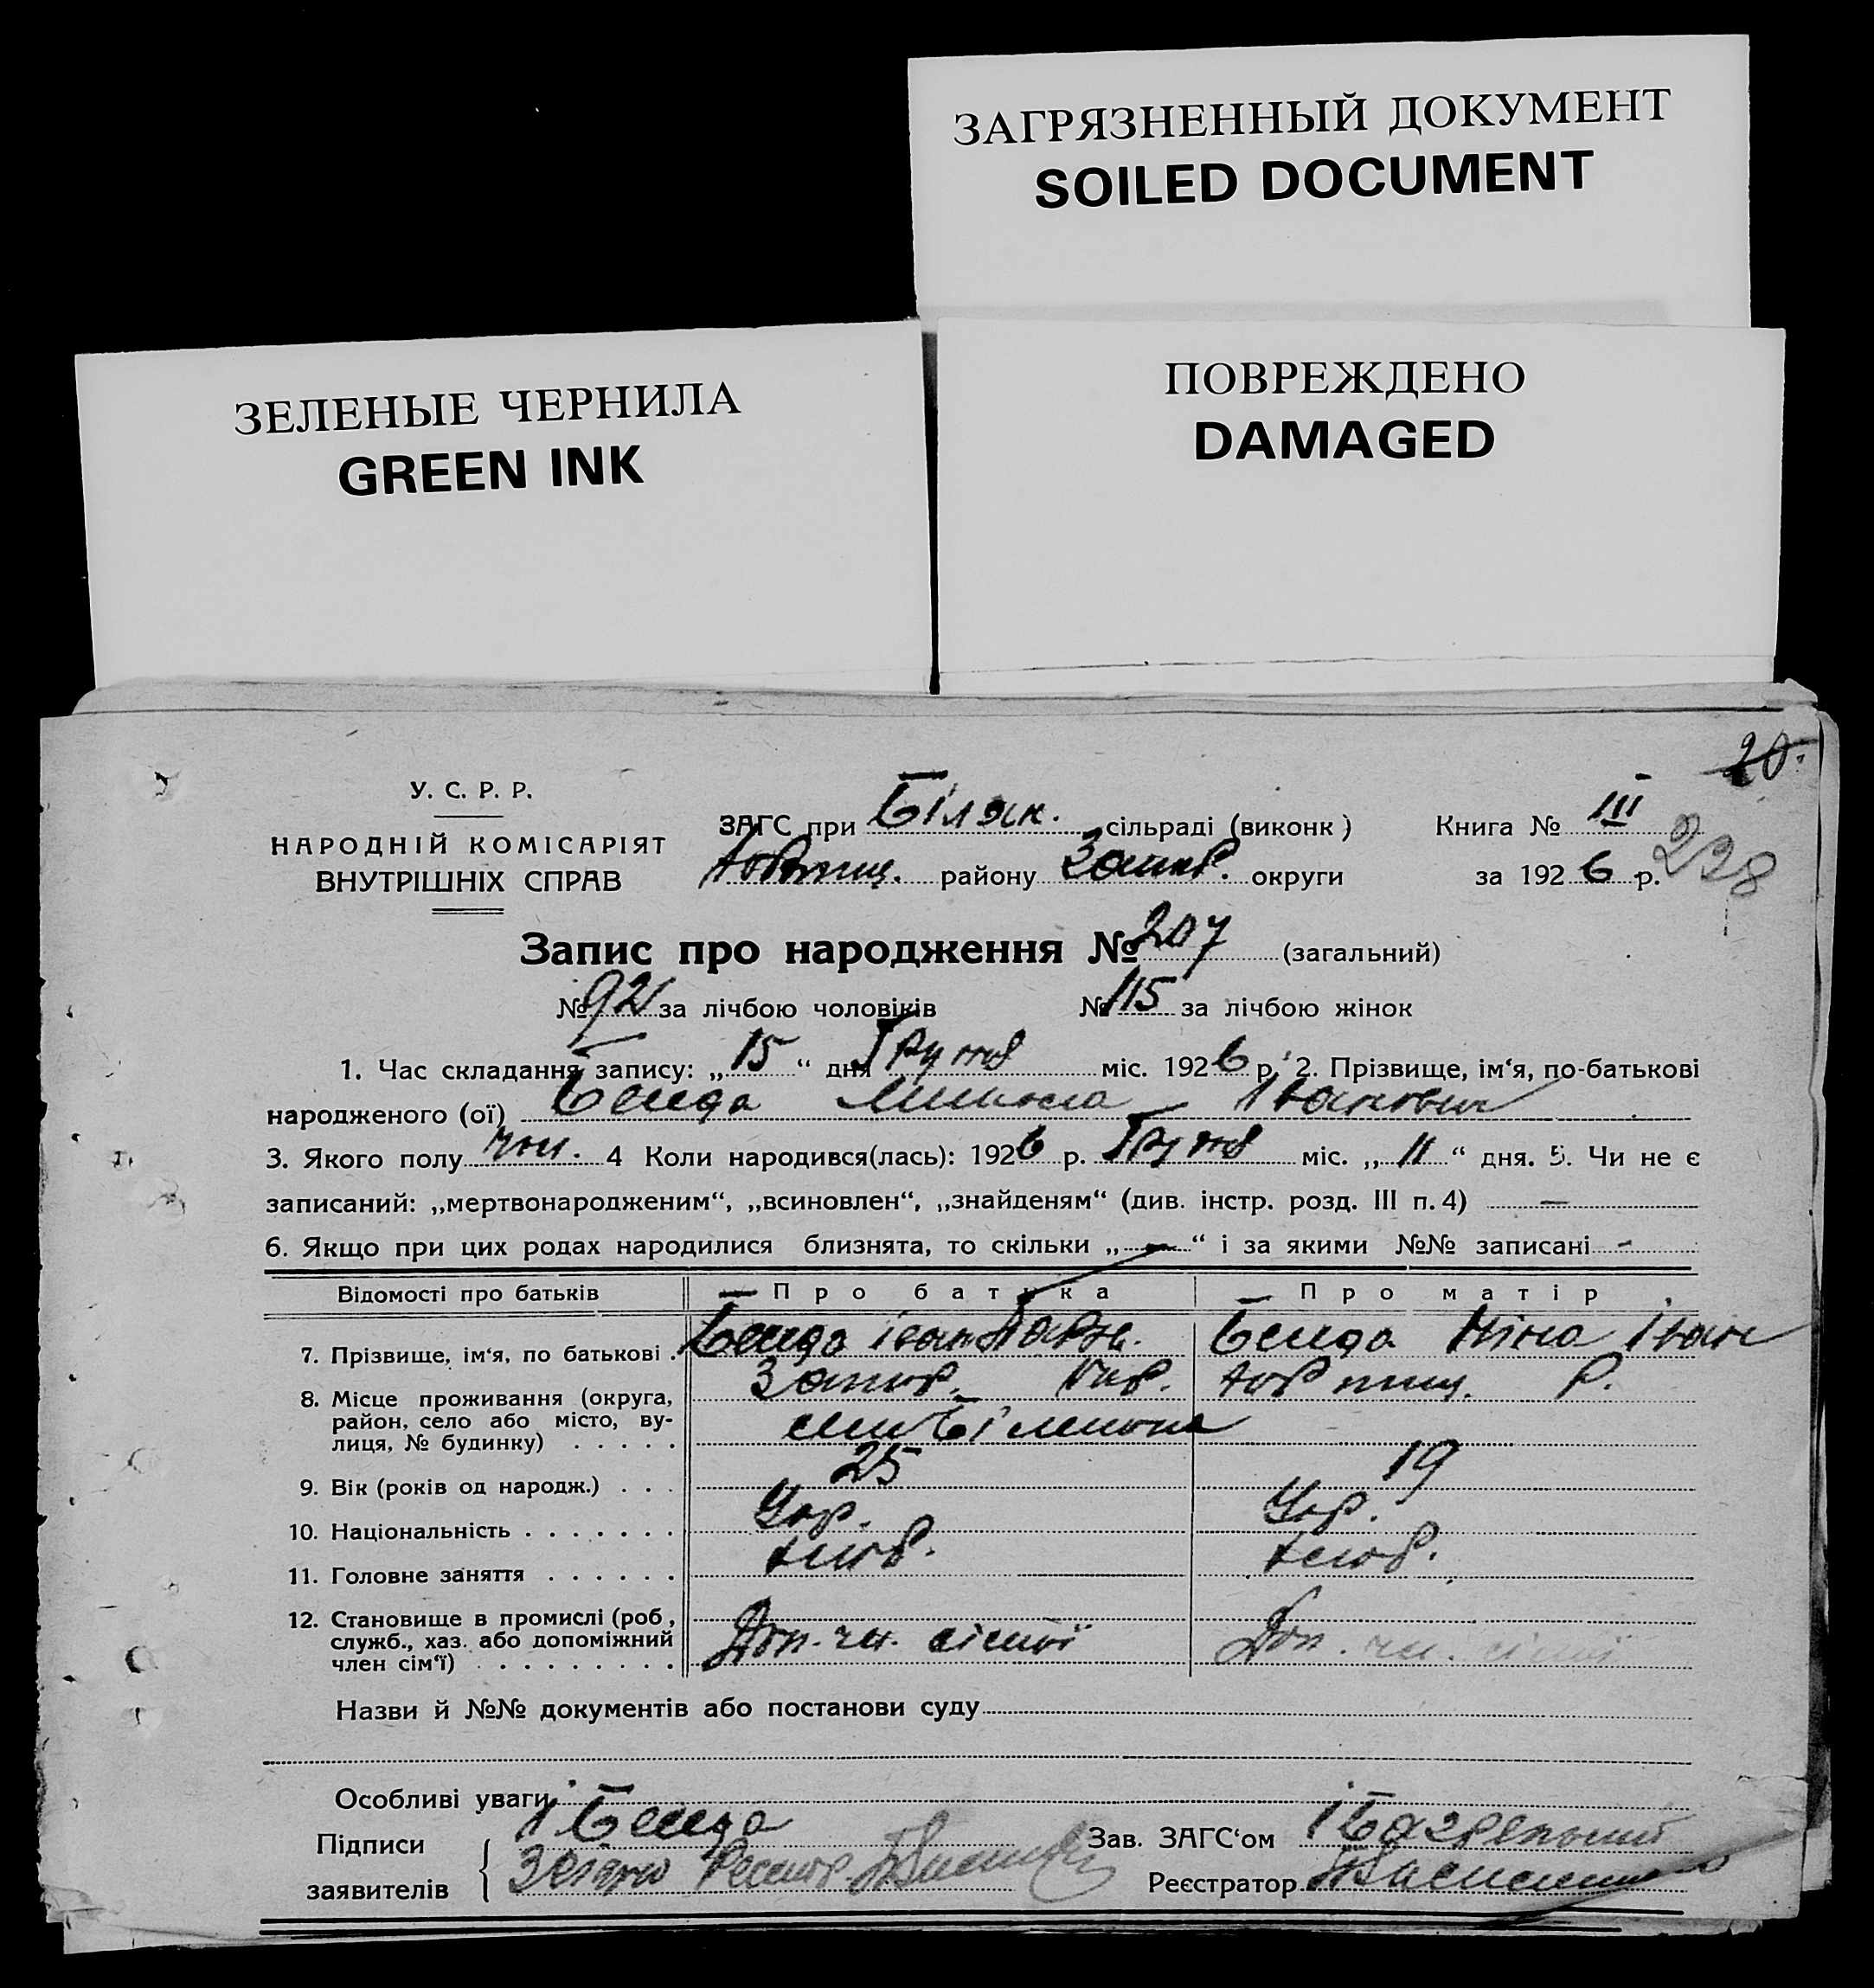 ЗАГРЯЗНЕННЫЙ ДОКУМЕНТ
SOILED DOCUMENT
ЗЕЛЕНЫЕ ЧЕРНИЛА
GREEN INK
ПОВРЕЖДЕНО
DAMAGED
20.
У. С. Р. Р.
НАРОДНІЙ КОМІСАРІЯТ
ВНУТРІШНІХ СПРАВ
ЗАГС при сільраді (виконк) Книга № III
238
району Запор. округи за 1926 р.
Запис про народження № 207 (загальний)
№ 92 за лічбою чоловіків № 115 за лічбою жінок
1. Час складання запису: „ 15 “ дня Грудня міс. 1926 р. 2. Прізвище, ім‘я, по-батькові
народженого (ої) Микола Іванович
3. Якого полу чол. 4 Коли народився(лась): 1926 р. Грудня міс. „ 11 “ дня. 5. Чи не є
записаний: „мертвонародженим“, „всиновлен“, „знайденям“ (див. інстр. розд. III п. 4) —
6. Якщо при цих родах народилися близнята, то скільки „ — “ і за якими №№ записані -
Відомості про батьків Про батька Про матір
7. Прізвище, ім‘я, по батькові . Іван Ніна Іван
8. Місце проживання (округа, Запор. Окр. Р.
район, село або місто, ву-
лиця, № будинку) . . . . .
9. Вік (років од народж.) . . . 25 19
10. Національність . . . . . . . Укр. Укр.
11. Головне заняття . . . . . . хліб. хліб.
12. Становище в промислі (роб,
служб., хаз. або допоміжний Доп. чл. сімї Доп. чл. сімї
член сім‘ї) . . . . . . . . .
Назви й №№ документів або постанови суду
Особливі уваги
Підписи Зав. ЗАГС‘ом
заявителів Реєстратор